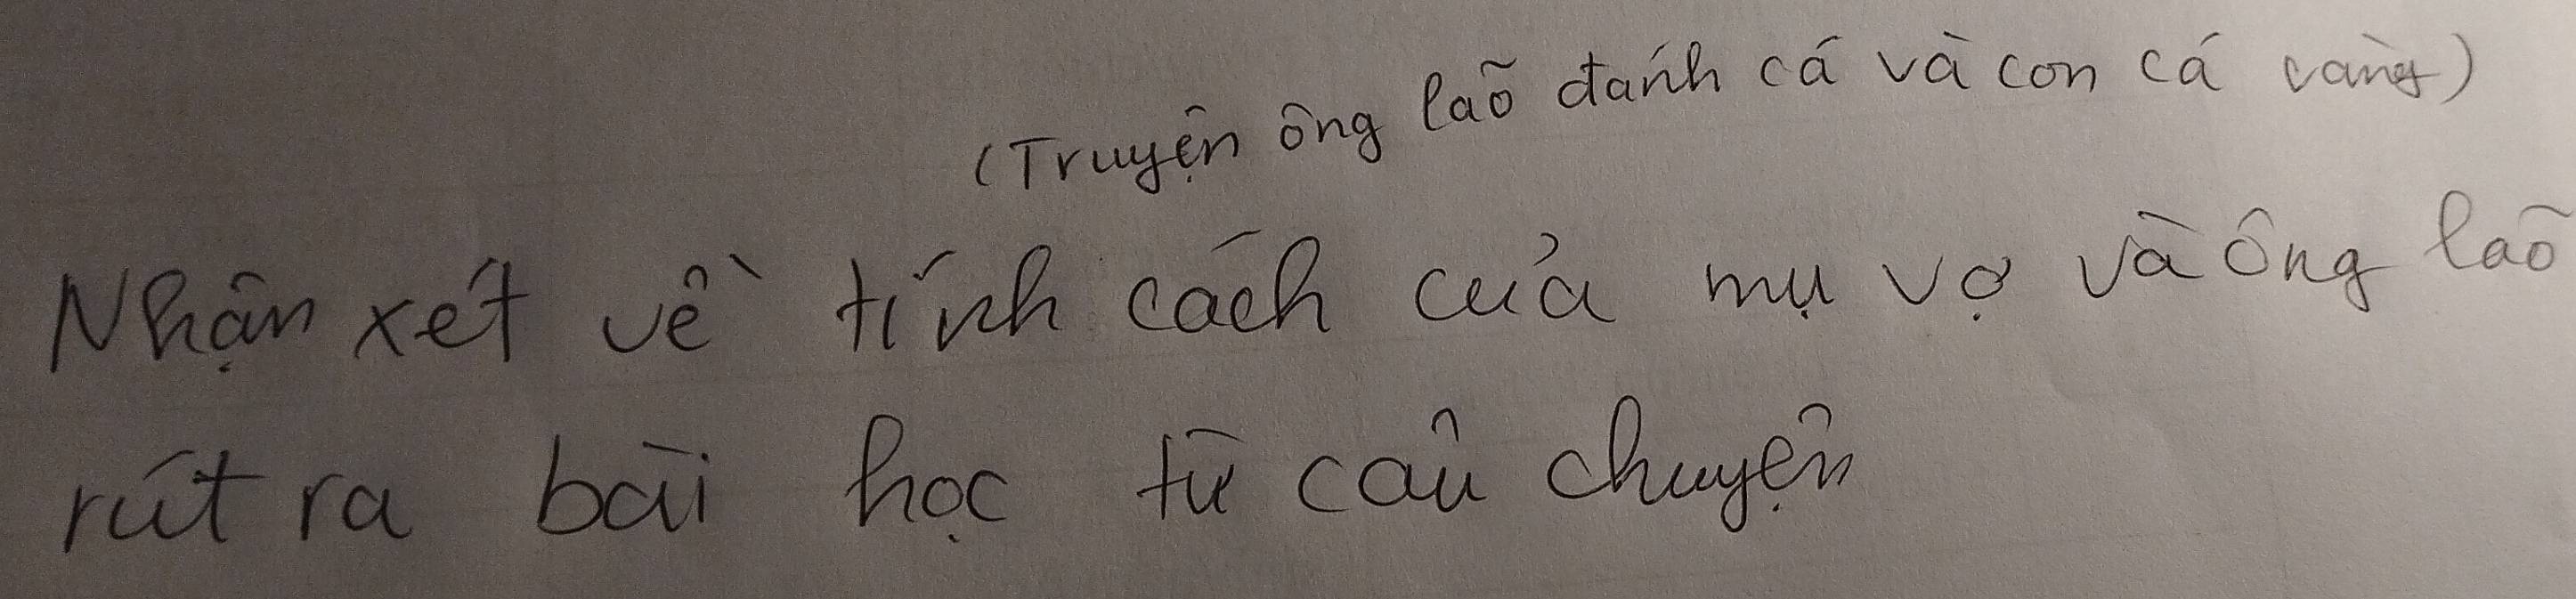 (Truyện ông lão đánh cá và con cá vàng)
Nhận xét về tính cách của mụ vợ và ông lão
rút ra bài học từ câu chuyện